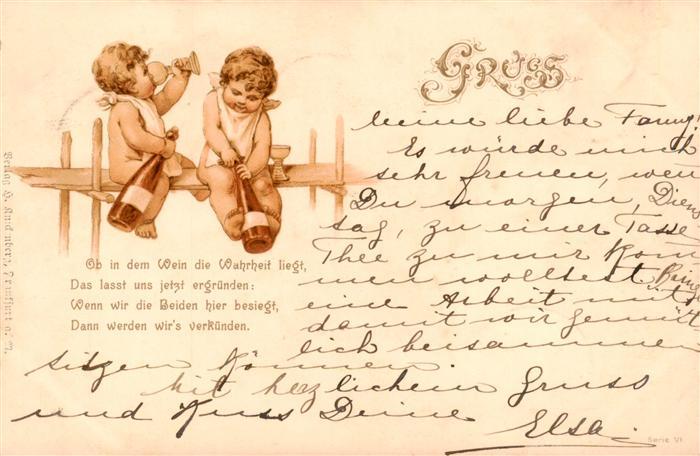 GRUSS
Meine liebe Fanny!
Es würde mich
sehr freuen, wen
Du morgen, Diens
tag, zu einer Tasse
Thee zu mir kom
men wolltest. Bring
eine Arbeit mit
damit wir gemüt
lich beisammen
sitzen können.
Mit herzlichem Gruss
und Kuss Deine
Elsa.
Ob in dem Wein die Wahrheit liegt,
Das lasst uns jetzt ergründen:
Wenn wir die Beiden hier besiegt,
Dann werden wir's verkünden.
Verlag
Serie VI